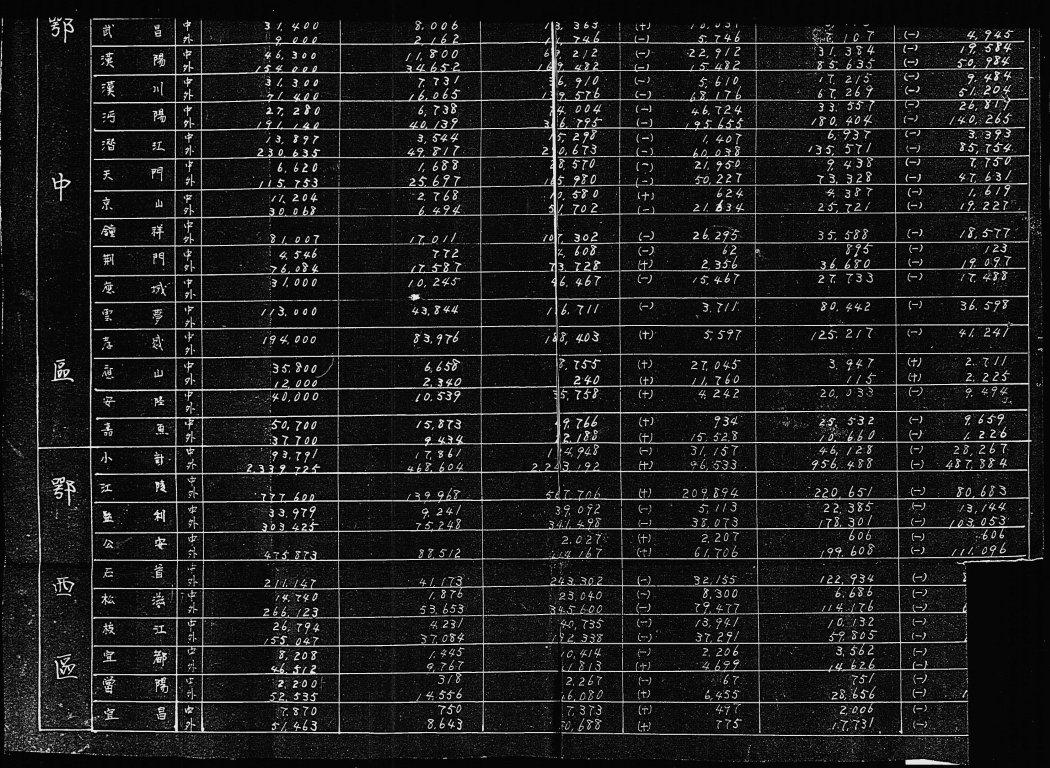 鄂中區
武昌 中 31,400 8,006 (+)
外 9,000 2,162 (-) 5,746 (-) 4,945
漢陽 中 46,300 11,800 (-) 22,912 31,384 (-) 19,584
外 154,000 34,652 (-) 15,482 85,635 (-) 50,984
漢川 中 31,300 7,731 (-) 5,610 17,215 (-) 9,484
外 71,400 16,065 (-) 68,176 67,269 (-) 51,204
沔陽 中 27,280 6,738 (-) 46,724 33,557 (-) 26,819
外 191,140 40,139 (-) 195,655 180,404 (-) 140,265
潛江 中 13,897 3,544 (-) 1,407 6,937 (-) 3,393
外 230,635 49,817 (-) 60,038 135,571 (-) 85,754
天門 中 6,620 1,688 (-) 21,950 9,438 (-) 7,750
外 115,753 25,697 (-) 50,227 73,328 (-) 47,631
京山 中 11,204 2,768 10,580 (+) 624 4,387 (-) 1,619
外 30,068 6,494 51,702 (-) 21,634 25,721 (-) 19,227
鍾祥 中
外 81,007 17,011 107,302 (-) 26,295 35,588 (-) 18,577
荆門 中 4,546 772 (-) 62 895 (-) 123
外 76,084 17,587 73,728 (+) 2,356 36,680 (-) 19,097
應城 中外 31,000 10,245 46,467 (-) 15,467 27,733 (-) 17,488
雲夢 中外 113,000 43,844 116,711 (-) 3,711 80,442 (-) 36,598
孝感 中外 194,000 83,976 188,403 (+) 5,597 125,217 (-) 41,241
應山 中 35,800 6,658 8,755 (+) 27,045 3,947 (+) 2,711
外 12,000 2,340 240 (+) 11,760 115 (+) 2,225
安陸 中外 40,000 10,539 35,758 (+) 4,242 20,033 (-) 9,494
嘉魚 中 50,700 15,873 49,766 (+) 934 25,532 (-) 9,659
外 37,700 9,434 (+) 15,528 10,660 (-) 1,226
小計 中 93,791 17,861 (-) 31,157 46,128 (-) 28,267
外 2,339,725 468,604 2,243,192 (+) 96,533 956,488 (-) 487,884
鄂西區
江陵 中
外 777,600 139,968 567,706 (+) 209,894 220,651 (-) 80,683
監利 中 33,979 9,241 39,092 (-) 5,113 22,385 (-) 13,144
外 303,425 75,248 341,498 (-) 38,073 178,301 (-) 103,053
公安 中 2,027 (+) 2,207 606 (-) 606
外 475,873 88,512 414,167 (+) 61,706 199,608 (-) 111,096
石首 中
外 211,147 41,173 243,302 (-) 32,155 122,934 (-)
松滋 中 14,740 1,876 23,040 (-) 8,300 6,686 (-)
外 266,123 53,653 345,600 (-) 79,477 114,176 (-)
枝江 中 26,794 4,231 40,735 (-) 13,941 10,132 (-)
外 155,047 37,084 192,338 (-) 37,291 59,805 (-)
宜都 中 8,208 1,445 10,414 (-) 2,206 3,562 (-)
外 46,512 9,767 41,813 (+) 4,699 14,626 (-)
當陽 中 2,200 318 2,267 (-) 67 751 (-)
外 52,535 14,556 46,080 (+) 6,455 28,656 (-)
宜昌 中 7,870 750 7,373 (+) 497 2,006 (-)
外 51,463 8,643 50,688 (+) 775 17,731 (-)